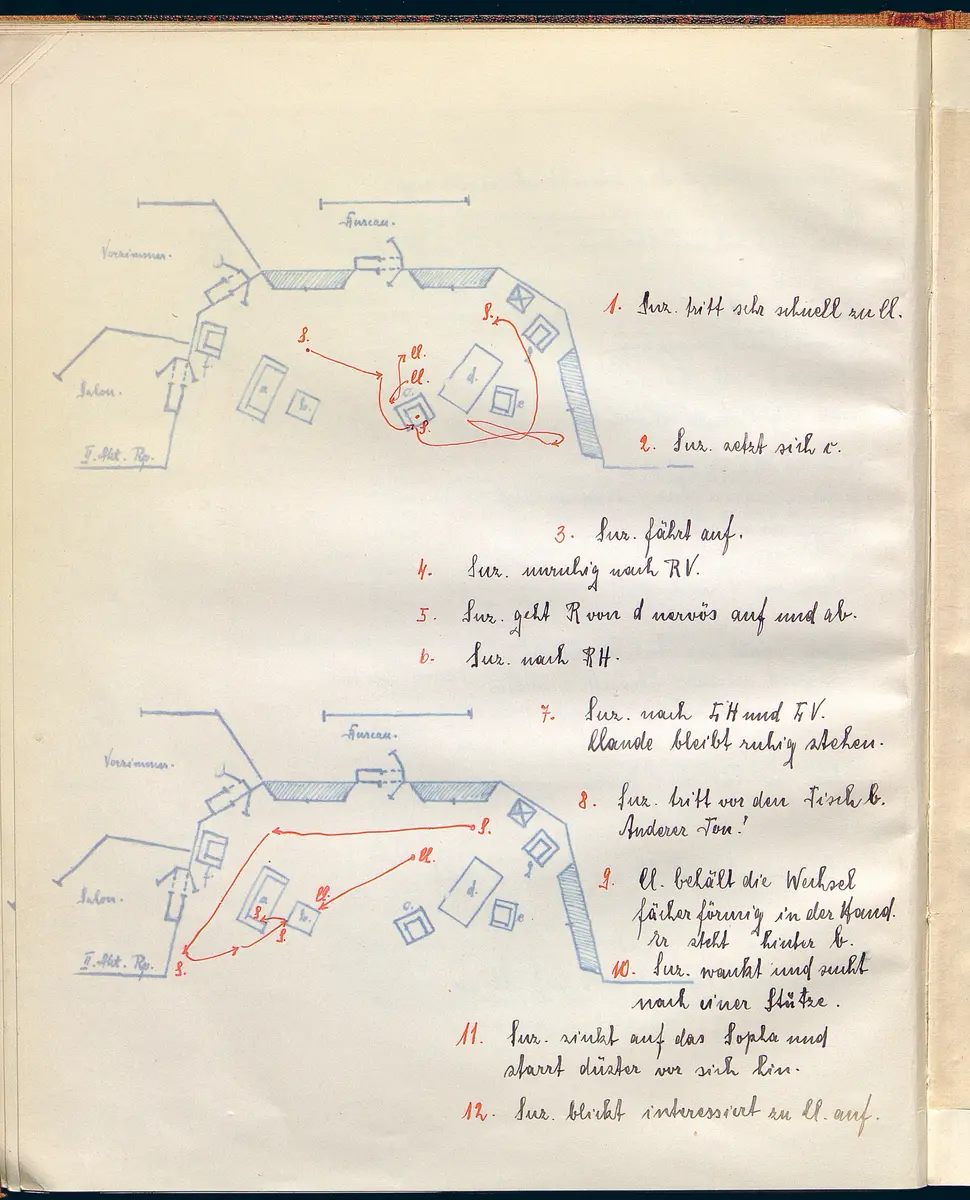 Bureau.
Vorzimmer.
Salon.
II. Akt. Rp.
S.
Cl.
Cl.
S.
S.
a
b.
c.
d.
e
f
g
1. Suz. tritt sehr schnell zu Cl.
2. Suz. setzt sich c.
3. Suz. fährt auf.
4. Suz. unruhig nach RV.
5. Suz. geht R von d nervös auf und ab.
6. Suz. nach RH.
Bureau.
Vorzimmer.
Salon.
II. Akt. Rp.
S.
Cl.
Cl.
S.
S.
S.
a
b.
c.
d.
e
f
g
7. Suz. nach LH und LV.
Claude bleibt ruhig stehen.
8. Suz. tritt vor den Tisch b.
Anderer Ton!
9. Cl. behält die Wechsel
fächerförmig in der Hand.
Er steht hinter b.
10. Suz. wankt und sucht
nach einer Stütze.
11. Suz. sinkt auf das Sopha und
starrt düster vor sich hin.
12. Suz. blickt interessiert zu Cl. auf.